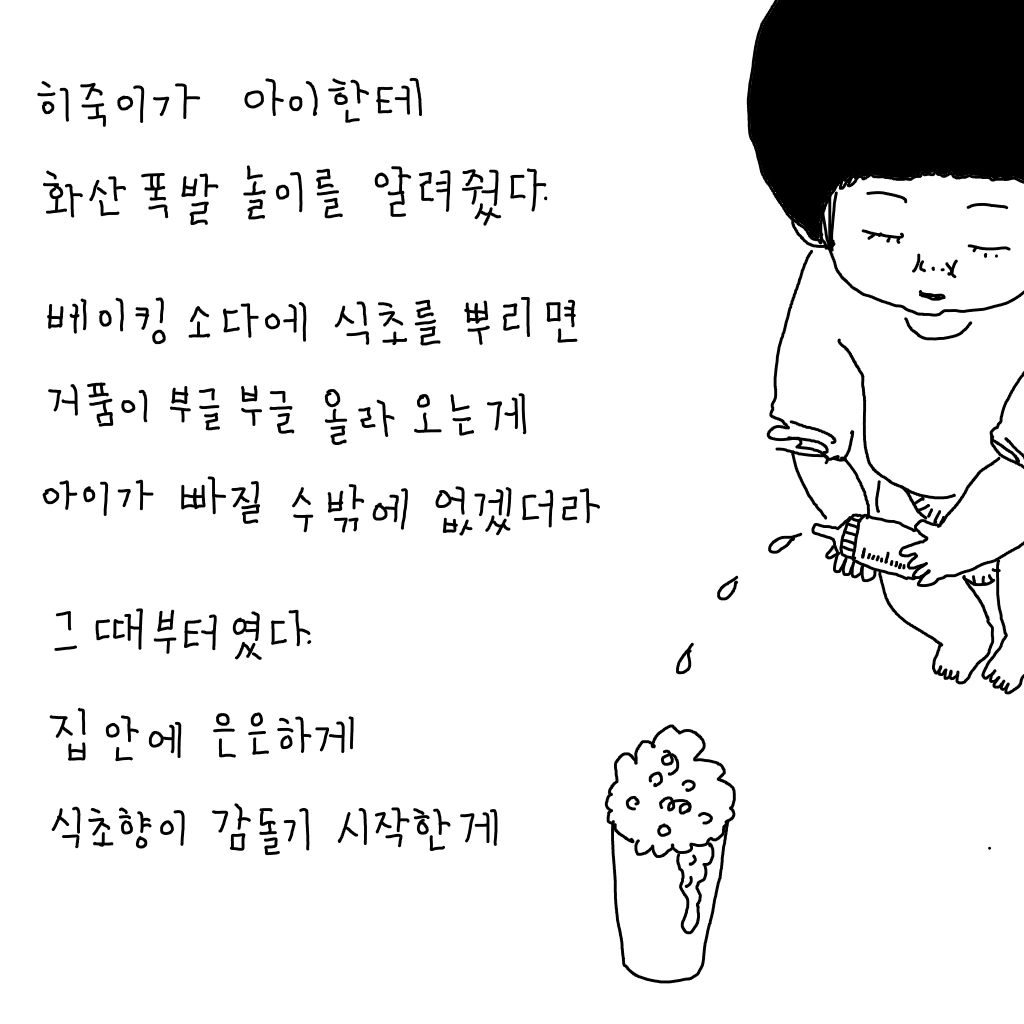 히죽이가 아이한테
화산 폭발 놀이를 알려줬다.
베이킹 소다에 식초를 뿌리면
거품이 부글 부글 올라 오는게
아이가 빠질 수 밖에 없겠더라
그 때부터였다.
집 안에 은은하게
식초향이 감돌기 시작한 게